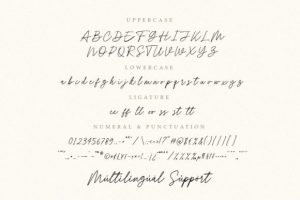 UPPERCASE
ABCDEFGHIJKLM
NOPQRSTUVWXYZ
LOWERCASE
abcdefghijklmnopqrstuvwxyz
LIGATURE
ee ff ll or ss st tt
NUMERAL & PUNCTUATION
0123456789
Multilingual Support